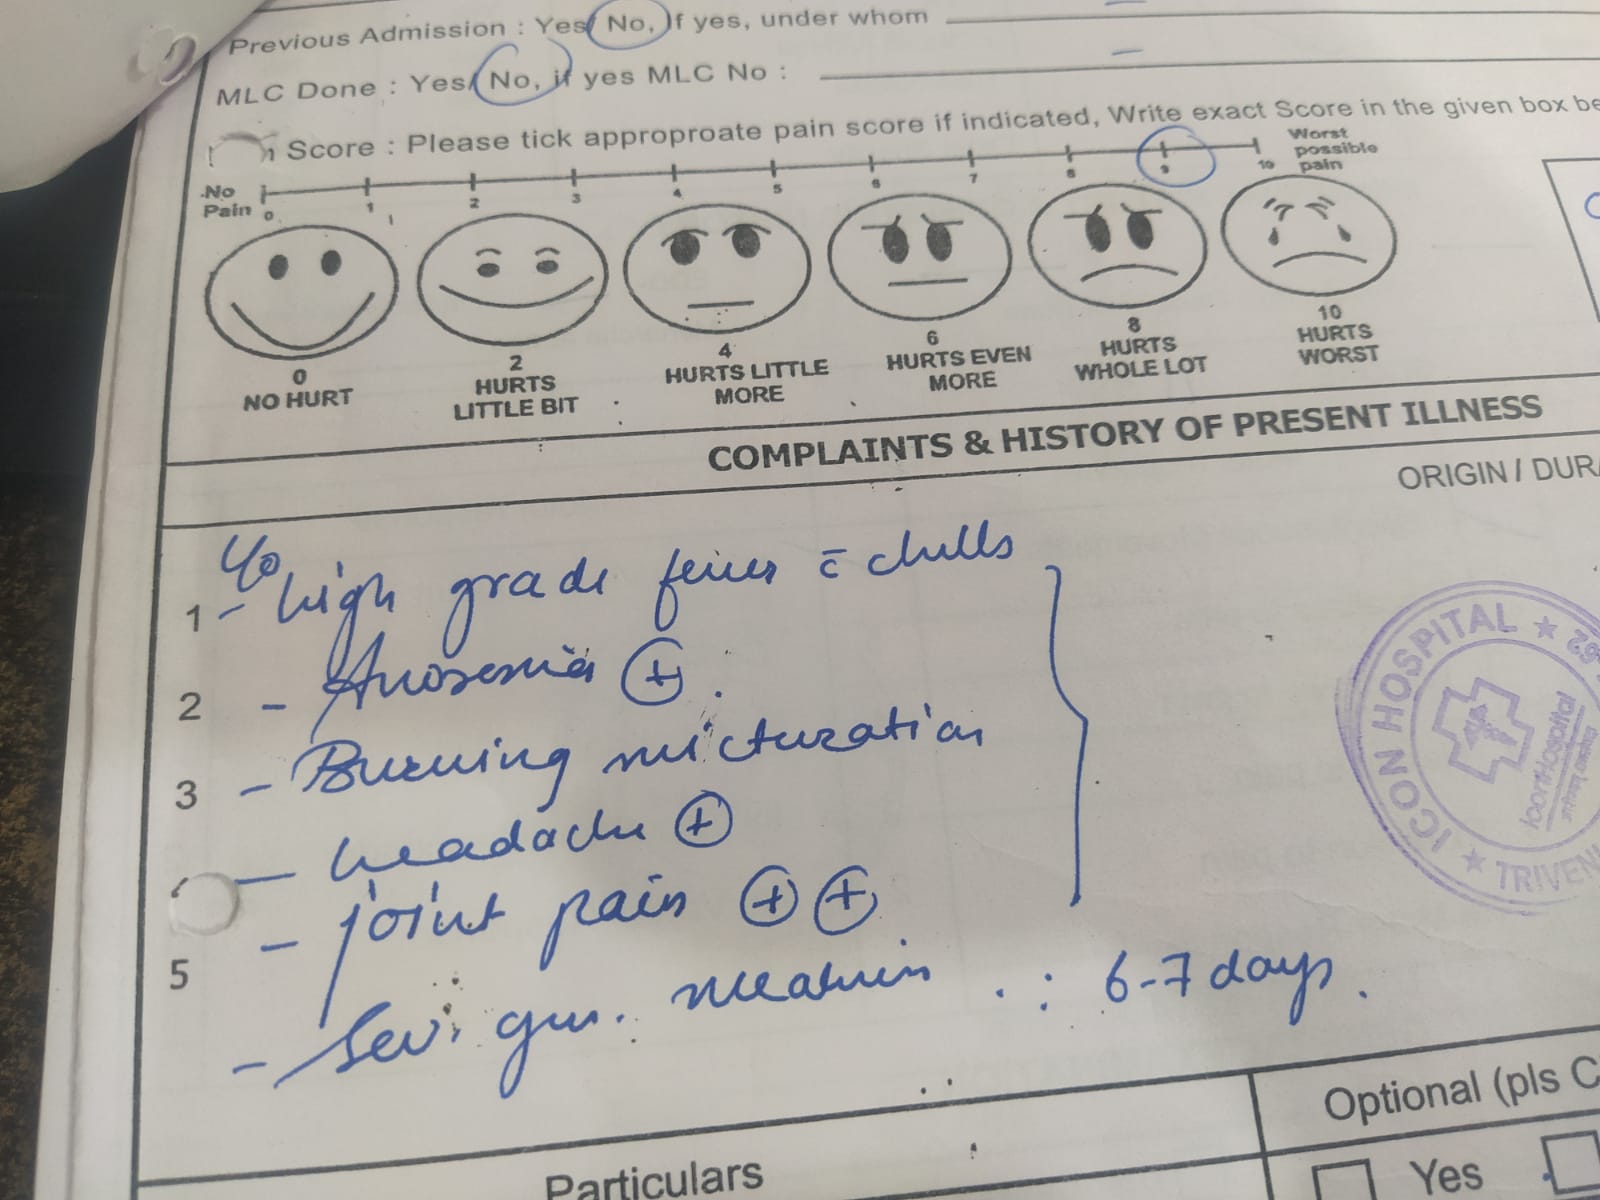 Previous Admission : Yes/ No, If yes, under whom
MLC Done : Yes/ No, if yes MLC No :
Score : Please tick approproate pain score if indicated, Write exact Score in the given box be
No Pain 0 1 2 3 4 5 6 7 8 9 10 Worst possible pain
0 NO HURT
2 HURTS LITTLE BIT
4 HURTS LITTLE MORE
6 HURTS EVEN MORE
8 HURTS WHOLE LOT
10 HURTS WORST
COMPLAINTS & HISTORY OF PRESENT ILLNESS
ORIGIN / DURA
C/o
1 - high grade fever c̄ chills
2 - +
3 - Burning micturation
- headache +
- joint pain + +
5
- Sev. gen. : 6-7 days.
ICON HOSPITAL ★
★ TRIVENI
IconHospital
Optional (pls C
Particulars
Yes